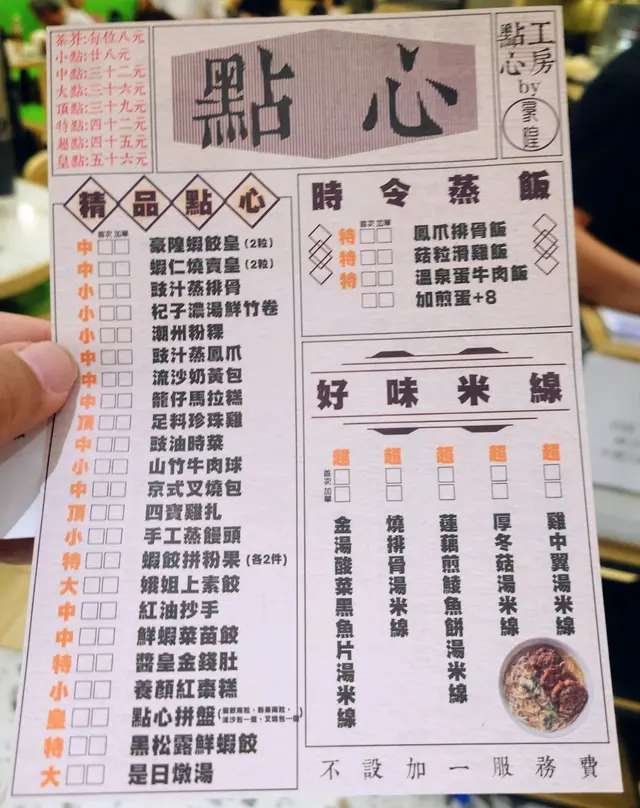 茶芥:每位八元
小點:廿八元
中點:三十二元
大點:三十六元
頂點:三十九元
特點:四十二元
超點:四十五元
皇點:五十六元
點心
點心工房
by
豪隍
精品點心
首次 加單
中 豪隍蝦餃皇(2粒)
中 蝦仁燒賣皇(2粒)
小 豉汁蒸排骨
小 杞子濃湯鮮竹卷
小 潮州粉粿
中 豉汁蒸鳳爪
中 流沙奶黃包
中 籠仔馬拉糕
頂 足料珍珠雞
中 豉油時菜
小 山竹牛肉球
中 京式叉燒包
頂 四寶雞扎
小 手工蒸饅頭
特 蝦餃拼粉果(各2件)
大 娥姐上素餃
中 紅油抄手
中 鮮蝦菜苗餃
特 醬皇金錢肚
小 養顏紅棗糕
皇 點心拼盤
特 黑松露鮮蝦餃
大 是日燉湯
時令蒸飯
首次 加單
特 鳳爪排骨飯
特 菇粒滑雞飯
特 溫泉蛋牛肉飯
加煎蛋+8
好味米線
首次 加單
超 金湯酸菜黑魚片湯米線
超 燒排骨湯米線
超 蓮藕煎鯪魚餅湯米線
超 厚冬菇湯米線
超 雞中翼湯米線
不設加一服務費